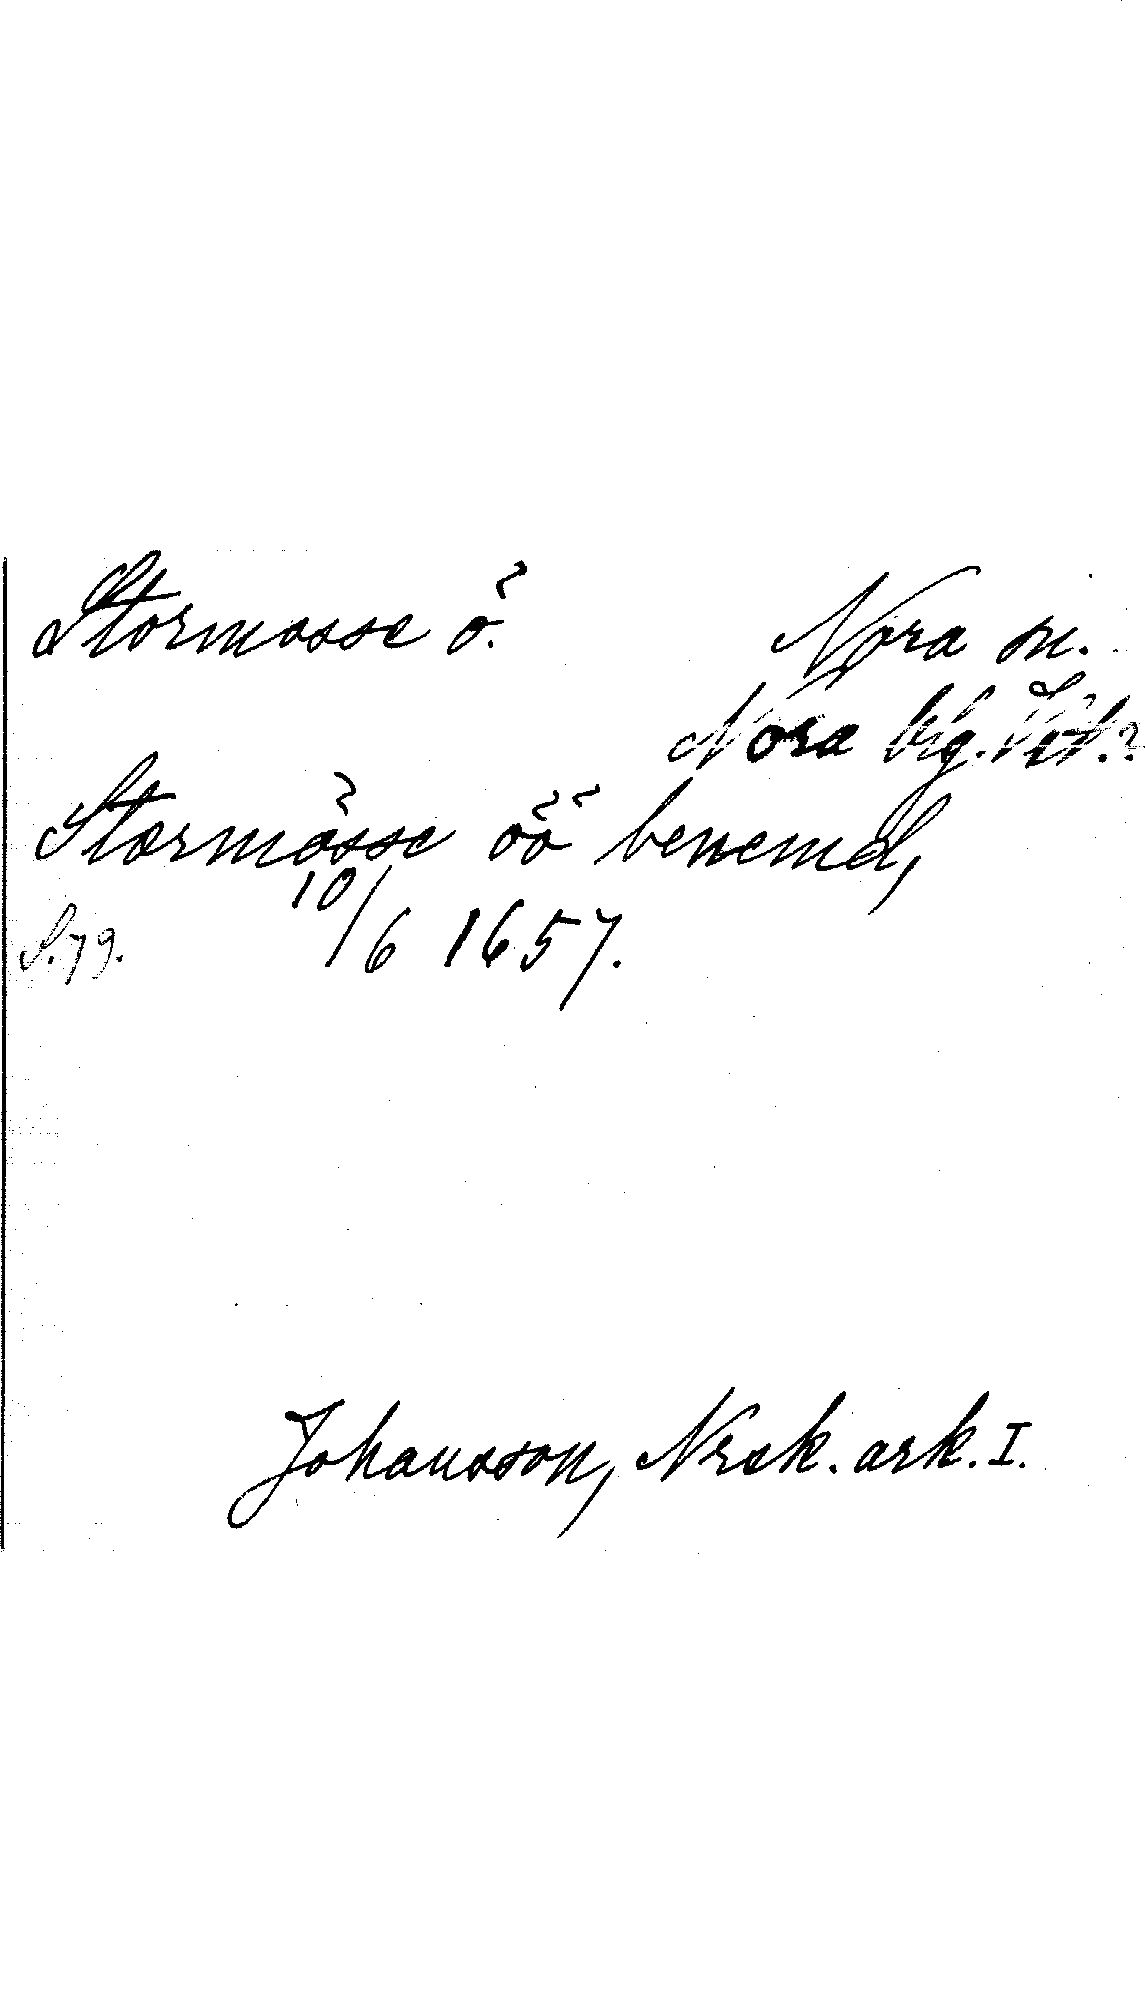 Stormosse ö. Nora sn.
Nora bg.
Stormösse öö benemd,
S. 79. 10/6 1657.
Johansson, Nrsk. ark. I.